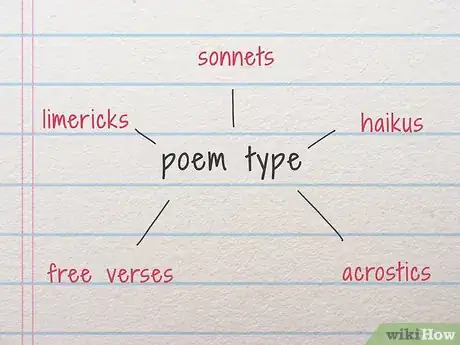 sonnets
limericks
haikus
poem type
free verses
acrostics
wikiHow